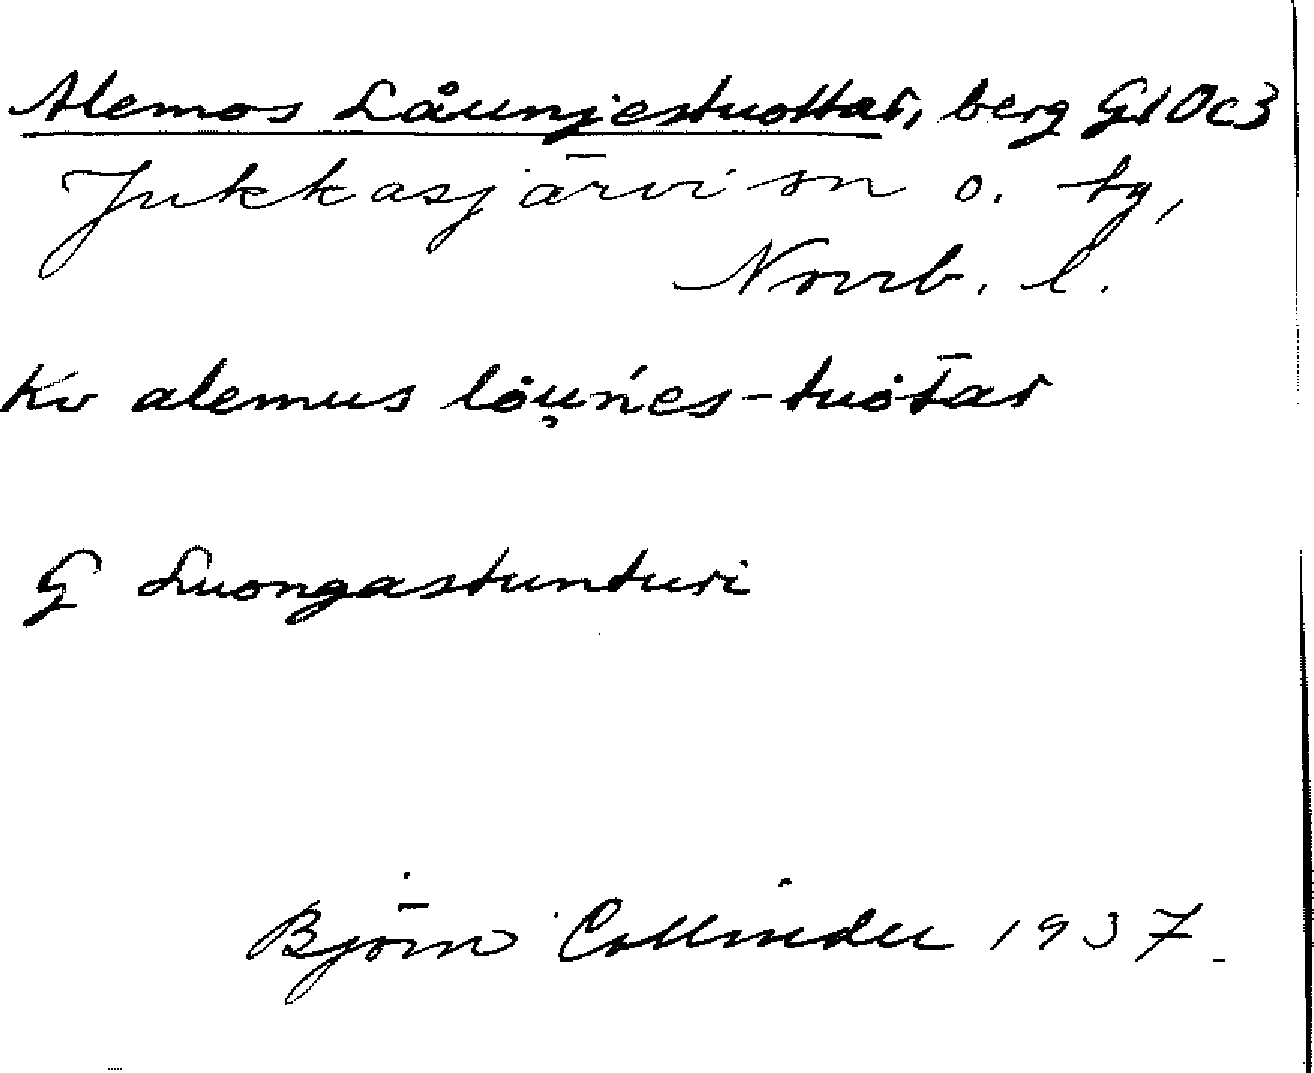 Alemos Låunjestuottar, berg Gd 10c3
Jukkasjärvi sn o. tg,
Norrb. l.
Kv alemus låu̯ńes-tuȯt̄ar
G Luongastunturi
Björn Collinder 1937.